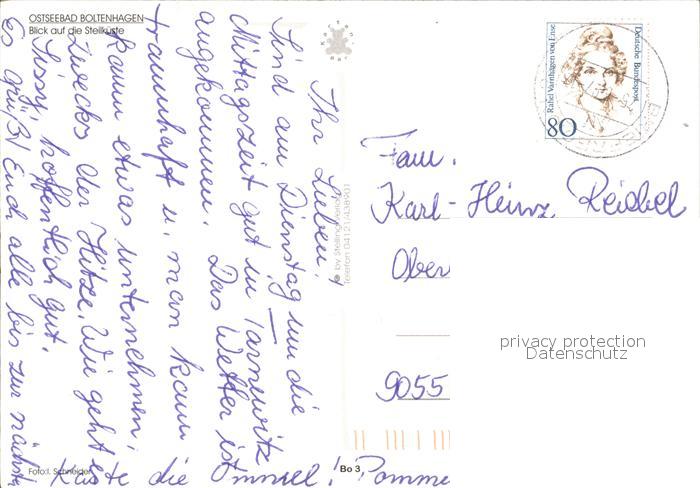 OSTSEEBAD BOLTENHAGEN
Blick auf die Steilküste
Ihr Lieben!
Sind am Dienstag um die
Mittagszeit gut in Tarnewitz
angekommen. Das Wetter ist
traumhaft u. man kann
kaum etwas unternehmen,
zwecks der Hitze. Wie geht es
Sissy, hoffentlich gut.
Es grüßt Euch alle bis zur nächsten
die Ommsel!
Foto: I. Schneider
Bo 3
© by Stelling Verlag
Telefon 04121/438901
Deutsche Bundespost
Rahel Varnhagen von Ense
80
Fam.
Karl-Heinz Reichel
Ober
9055
privacy protection
Datenschutz